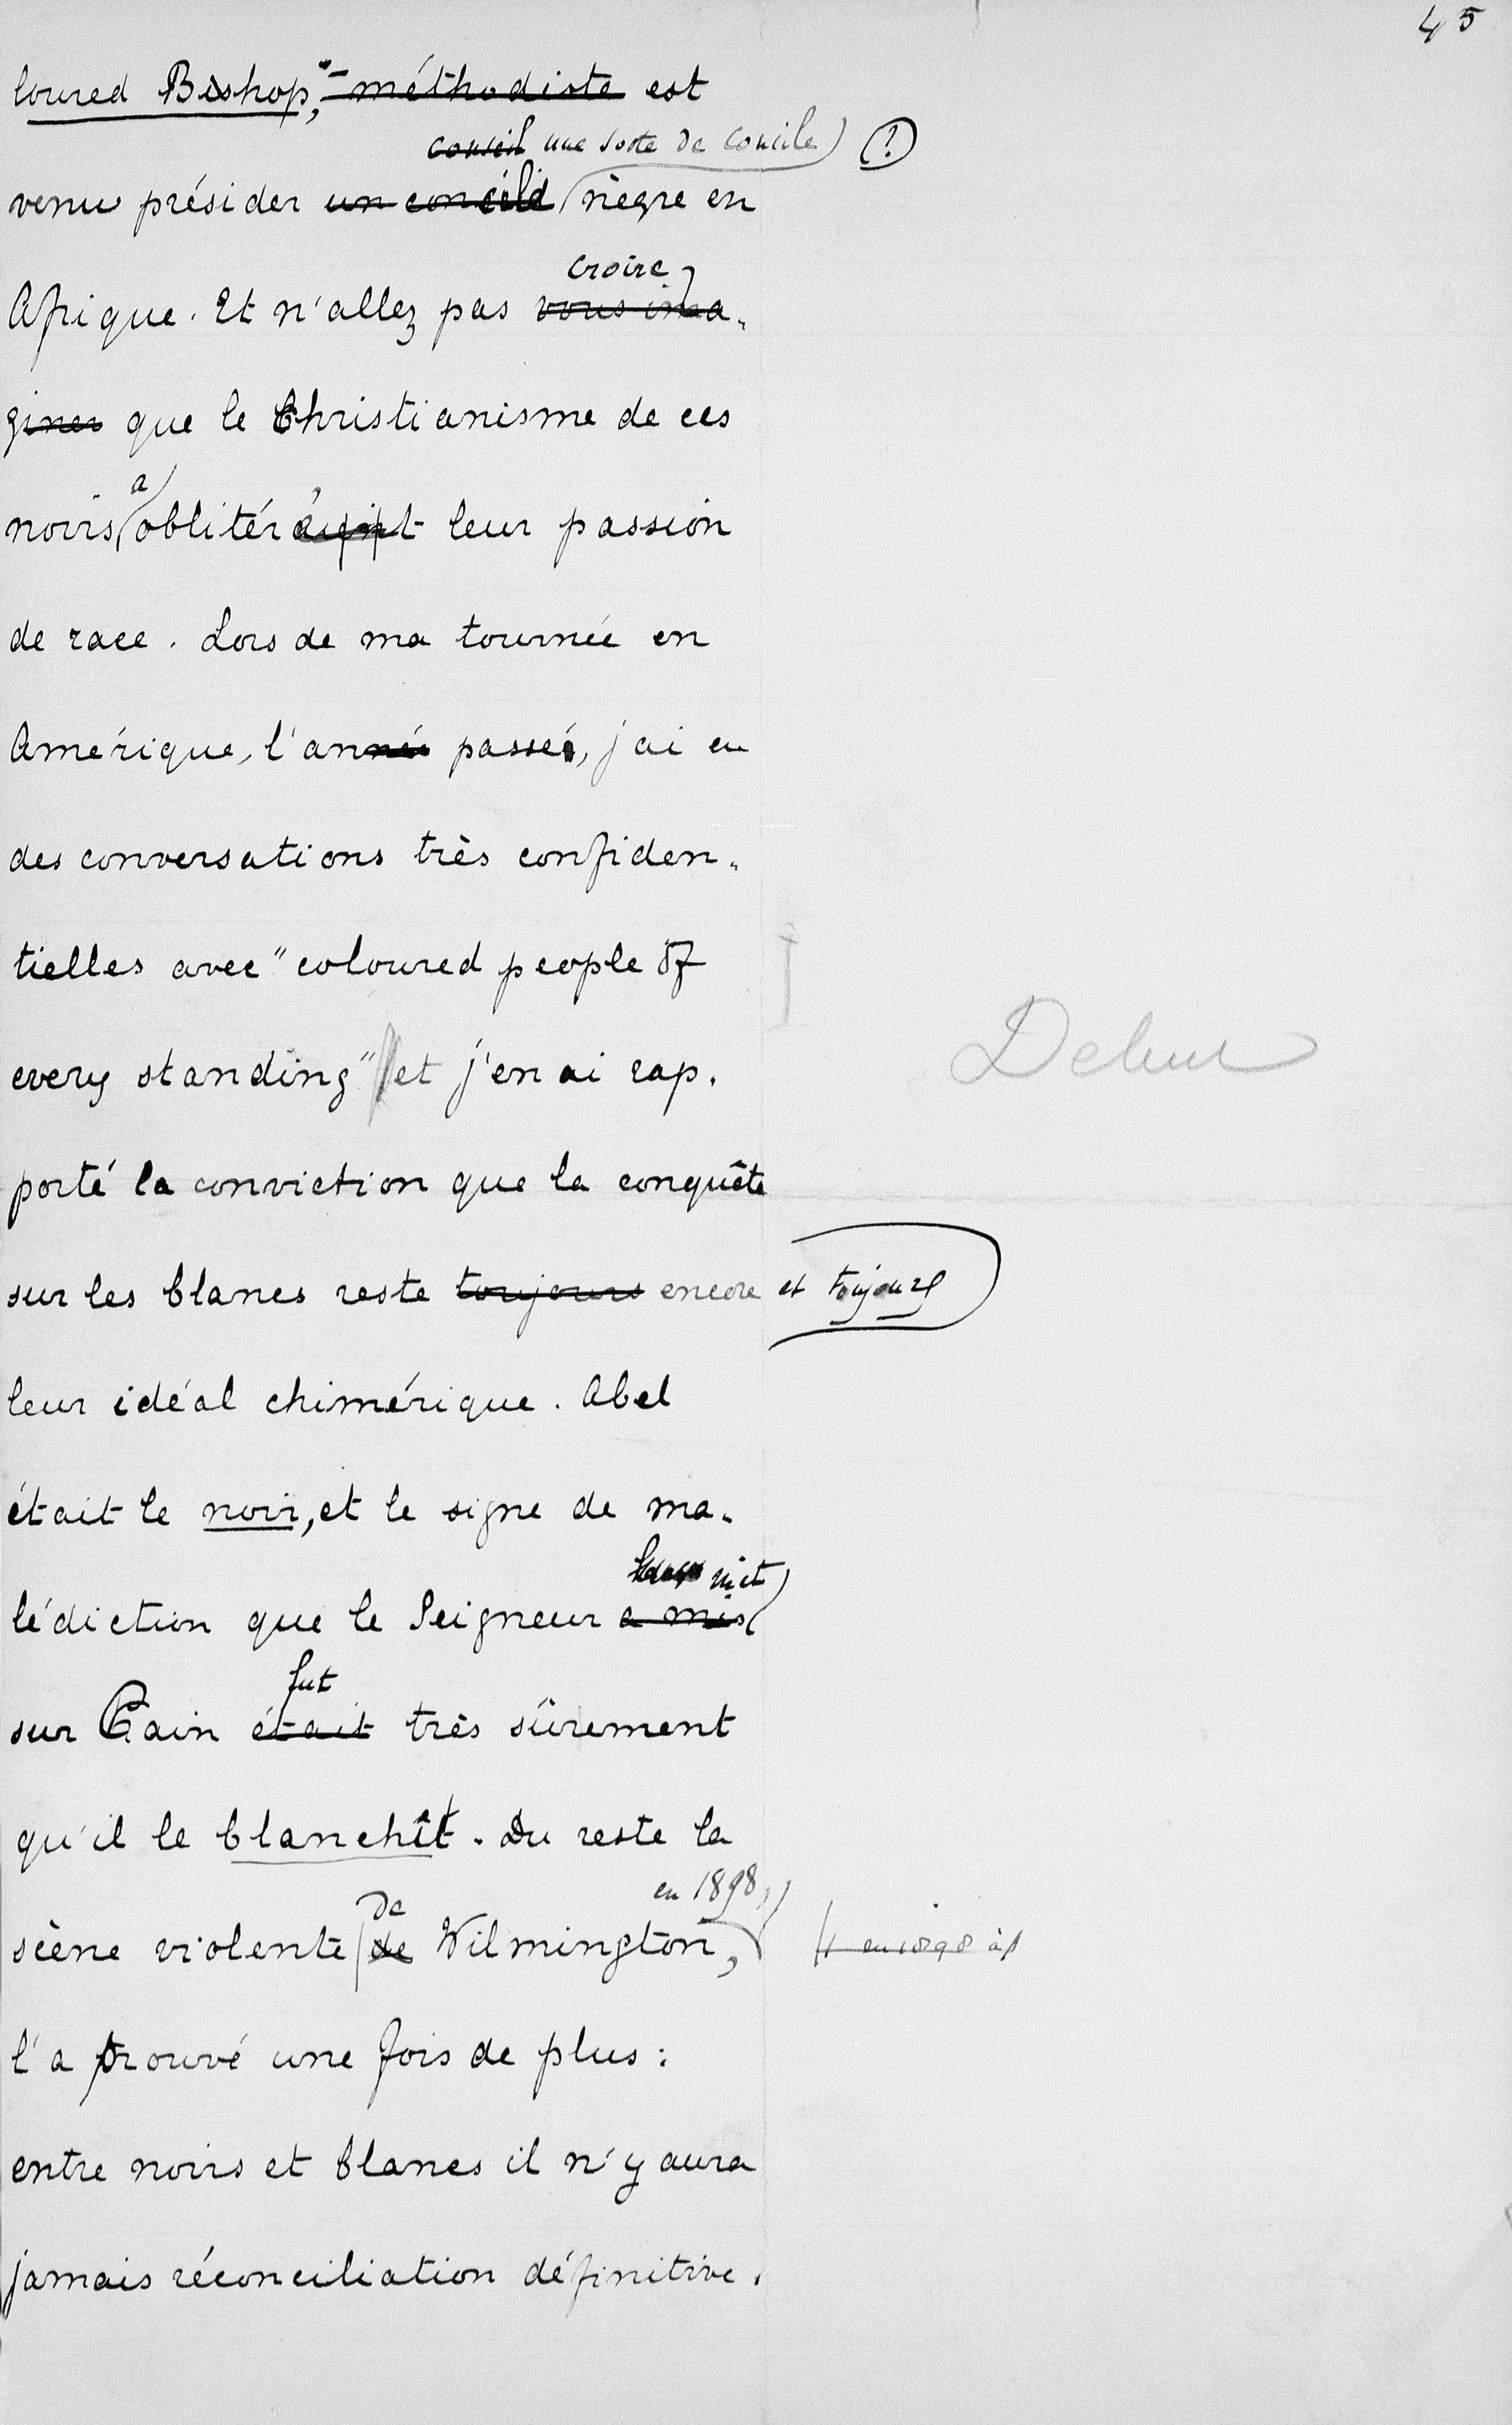 45
loured Bishop", - méthodiste est
conseil une sorte de concile (?)
venu présider un concile nègre en
croire
Afrique. Et n'allez pas vous ima-
giner que le Christianisme de ces
a
noirs oblitér leur passion
de race. Lors de ma tournée en
Amérique, l'année passée, j'ai eu
des conversations très confiden-
tielles avec "coloured people of
every standing" et j'en ai rap-
Debut
porté la conviction que la conquête
sur les blancs reste toujours encore et toujours
leur idéal chimérique. Abel
était le noir, et le signe de ma-
mit
lédiction que le Seigneur a mis
fut
sur Caïn était très sûrement
qu'il le blanchît. Du reste la
de en 1898,
scène violente de Wilmington, en 1898 à
l'a prouvé une fois de plus:
entre noirs et blancs il n'y aura
jamais réconciliation définitive.